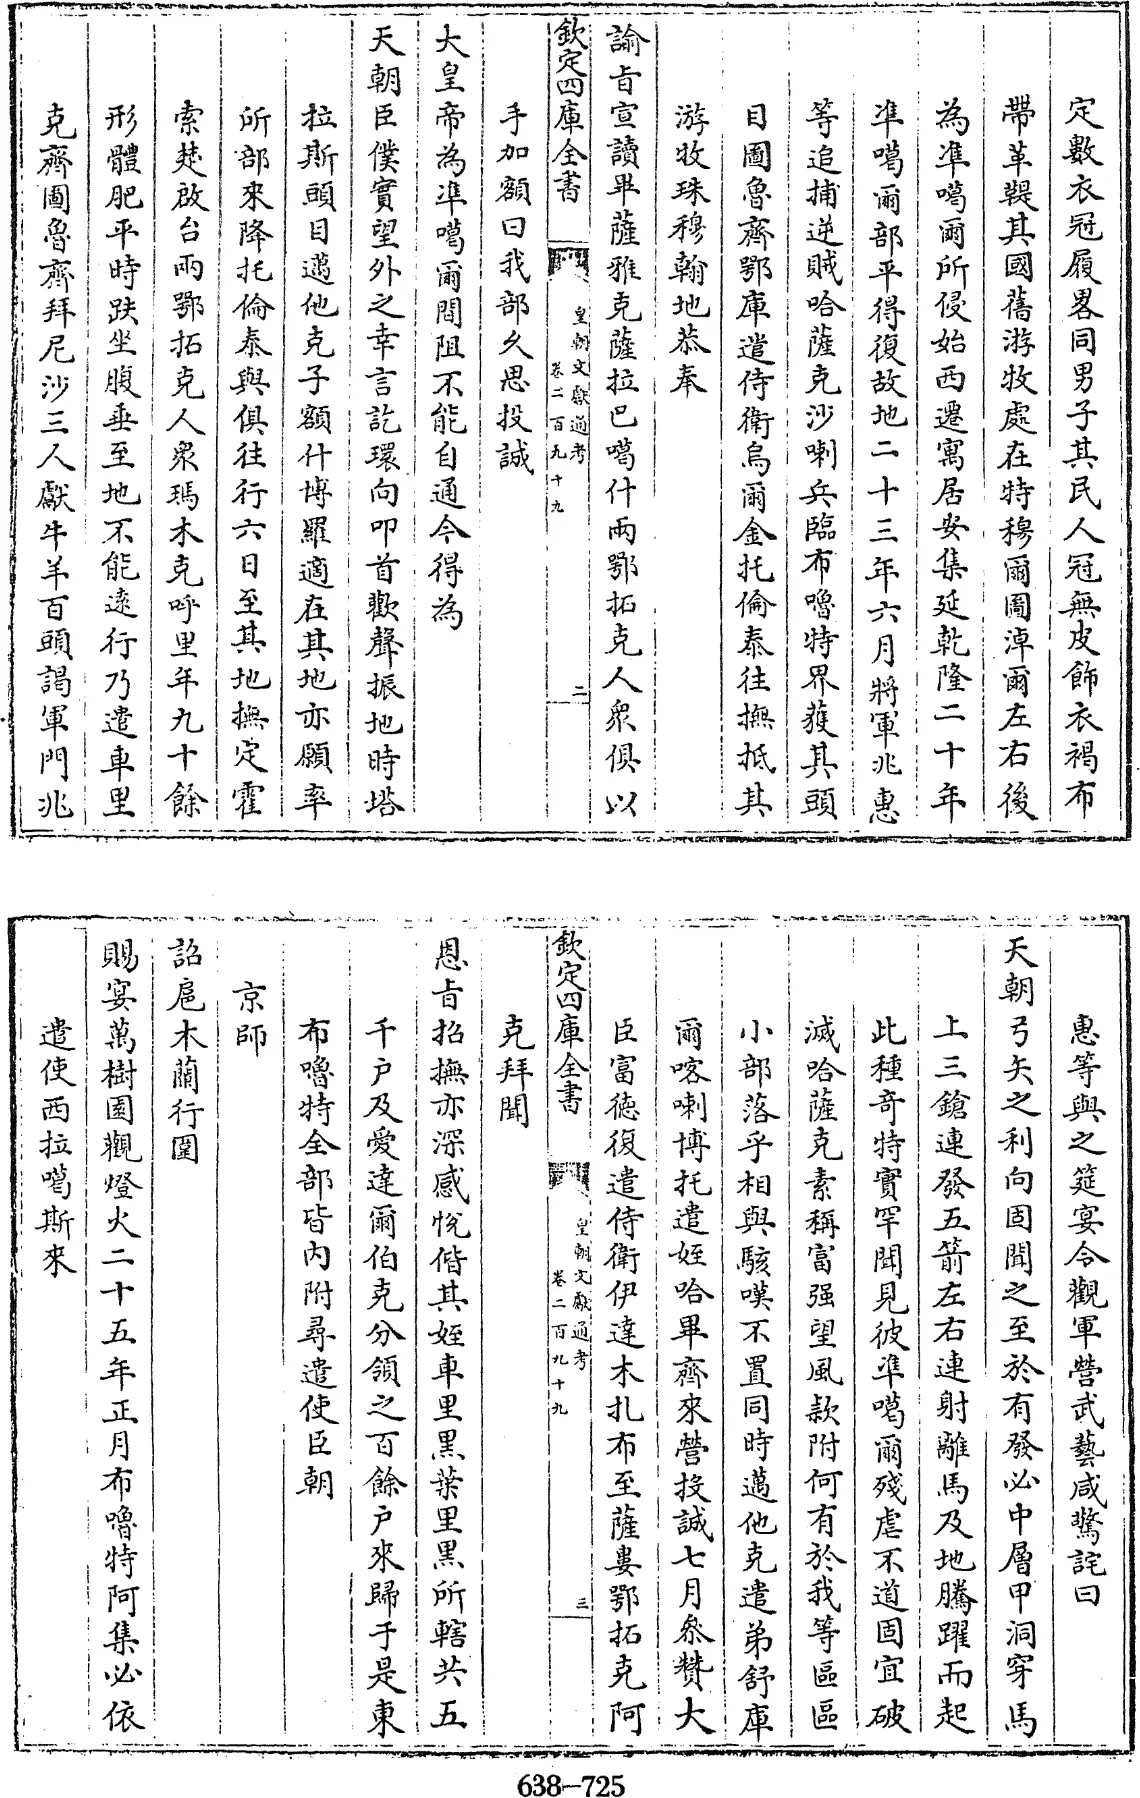 定數衣冠履畧同男子其民人冠無皮飾衣褐布
帶革鞮其國舊游牧處在特穆爾圖淖爾左右後
為凖噶爾所侵始西遷寓居安集延乾隆二十年
凖噶爾部平得復故地二十三年六月將軍兆惠
等追捕逆賊哈薩克沙喇兵臨布嚕特界獲其頭
目圖魯齊鄂庫遣侍衛烏爾金托倫泰往撫抵其
游牧珠穆翰地恭奉
諭旨宣讀畢薩雅克薩拉巴噶什兩鄂拓克人衆俱以
欽定四庫全書
皇朝文獻通考
卷二百九十九
二
手加額曰我部久思投誠
大皇帝為凖噶爾間阻不能自通今得為
天朝臣僕實望外之幸言訖環向叩首歡聲振地時塔
拉斯頭目邁他克子額什博羅適在其地亦願率
所部來降托倫泰與俱往行六日至其地撫定霍
索楚啟台兩鄂拓克人衆瑪木克呼里年九十餘
形體肥平時趺坐腹垂至地不能遠行乃遣車里
克齊圖魯齊拜尼沙三人獻牛羊百頭謁軍門兆
惠等與之筵宴令觀軍營武藝咸驚詫曰
天朝弓矢之利向固聞之至於有發必中層甲洞穿馬
上三鎗連發五箭左右連射離馬及地騰躍而起
此種奇特實罕聞見彼凖噶爾殘虐不道固宜破
滅哈薩克素稱富强望風款附何有於我等區區
小部落乎相與駭嘆不置同時邁他克遣弟舒庫
爾喀喇博托遣姪哈畢齊來營投誠七月叅贊大
臣富德復遣侍衛伊達木扎布至薩婁鄂拓克阿
欽定四庫全書
皇朝文獻通考
卷二百九十九
三
克拜聞
恩旨招撫亦深感悅偕其姪車里黑葉里黑所轄共五
千户及愛達爾伯克分領之百餘户來歸于是東
布嚕特全部皆内附尋遣使臣朝
京師
詔扈木蘭行圍
賜宴萬樹園觀燈火二十五年正月布嚕特阿集必依
遣使西拉噶斯來
638-725